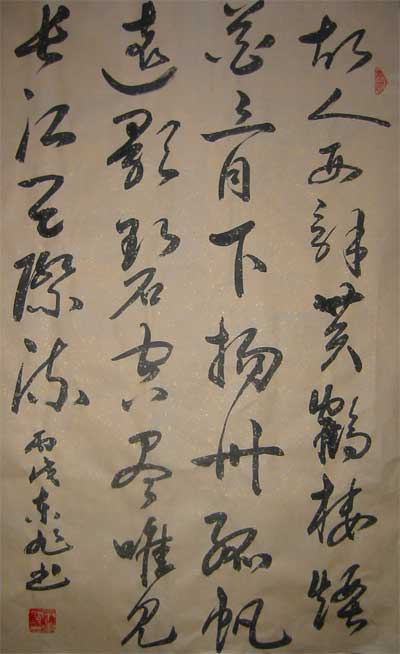 故人西辞黄鶴楼煙
花三月下扬州孤帆
遠影碧空尽唯见
长江天際流
丙戌東旭书